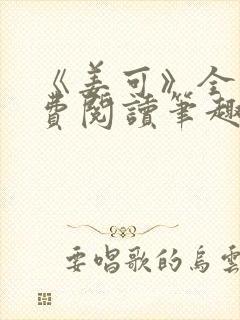 《姜可》全
費閱讀筆趣
要唱歌的烏雲